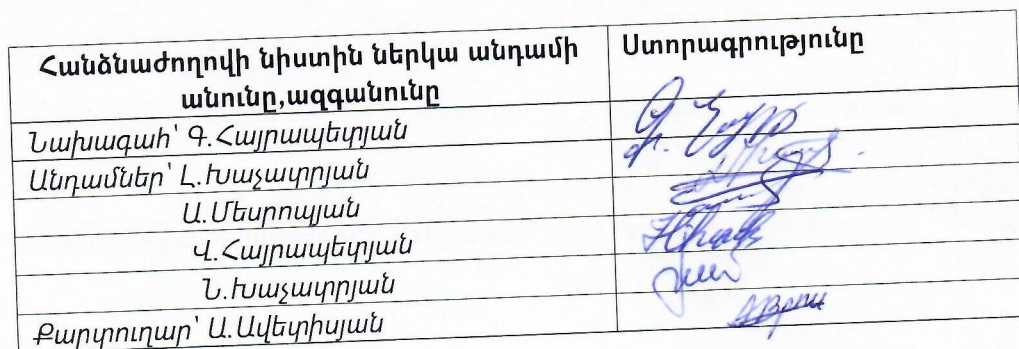 Հանձնաժողովի նիստին ներկա անդամի
անունը,ազգանունը
Ստորագրությունը
Նախագահ՝ Գ.Հայրապետյան
Անդամներ՝ Լ.Խաչատրյան
Ա.Մեսրոպյան
Վ.Հայրապետյան
Ն.Խաչատրյան
Քարտուղար՝ Ա.Ավետիսյան